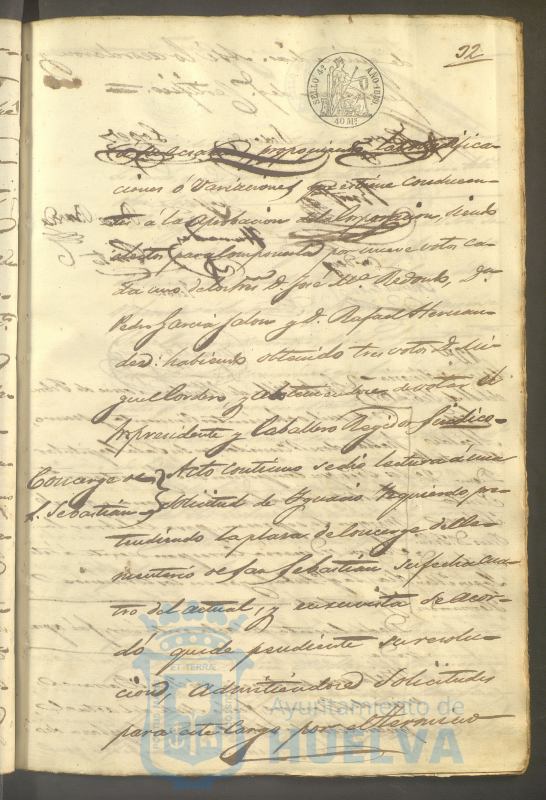 32
SELLO 4º AÑO 1870
40 Ms.
proponiendo las modifica-
ciones ó variaciones que estime conducen-
tes á la aprobacion de la Corporacion, siendo
electos para componerla por nueve votos ca-
da uno de los Sres. D. José Mª Redondo, Dn
Pedro Garcia Jalon y D. Rafael Hernan-
dez: habiendo obtenido tres votos D. Mi-
guel Cordero, y absteniendose de votar el
Sr. presidente y Caballero Regidor Sindico-
Concerge de
S. Sebastián
Acto continuo se dió lectura á una
solicitud de Ygnacio Yzquierdo pre-
tendiendo la plaza de Concerge del Ce-
menterio de San Sebastian su fecha cua-
tro del actual, y en su vista se acor-
dó quede pendiente su resolu-
cion, admitiendose solicitudes
para este cargo por el termino
ET TERRAE
Ayuntamiento de
HUELVA